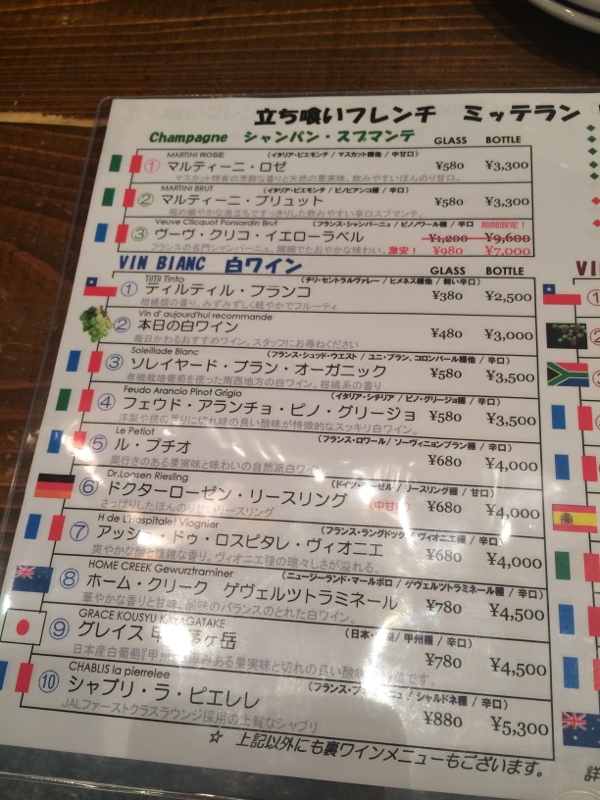 立ち喰いフレンチ ミッテラン
Champagne シャンパン・スプマンテ GLASS BOTTLE
MARTINI ROSE (イタリア・ピエモンテ / マスカット種他 / 中甘口)
① マルティーニ・ロゼ ¥580 ¥3,300
マスカット特有の芳醇な香りと天然の果実味。飲みやすいほんのり甘口。
MARTINI BRUT (イタリア・ピエモンテ / ピノビアンコ種 / 辛口)
② マルティーニ・ブリュット ¥580 ¥3,300
Veuve Clicquot Ponsardin Brut (フランス・シャンパーニュ / ピノノワール種 / 辛口 期間限定!
③ ヴーヴ・クリコ・イエローラベル ¥1,200 ¥9,600
フランスの名門シャンパーニュ。繊細でたおやかな味わい。激安! ¥980 ¥7,000
VIN BIANC 白ワイン GLASS BOTTLE
TilTil Tinto (チリ・セントラルヴァレー / ヒメネス種他 / 軽い辛口)
① ティルティル・フランコ ¥380 ¥2,500
柑橘類の香り。みずみずしく軽やかでフルーティ
Vin d' aujourd'hui recommande
② 本日の白ワイン ¥480 ¥3,000
毎日かわるおすすめワイン。スタッフにお尋ねください
Soleillade Blanc (フランス・シュッド・ウエスト / ユニ・ブラン、コロンバール種他 / 辛口)
③ ソレイヤード・ブラン・オーガニック ¥580 ¥3,500
有機栽培葡萄を使った南西地方の白ワイン。柑橘系の香り
Feudo Arancio Pinot Grigio (イタリア・シチリア / ピノ・グリージョ種 / 辛口)
④ フェウド・アランチョ・ピノ・グリージョ ¥580 ¥3,500
洋梨や桃の香りに切れ味の良い酸味が特徴的なスッキリ白ワイン。
Le Petiot (フランス・ロワール / ソーヴィニョンブラン種 / 辛口)
⑤ ル・プチオ ¥680 ¥4,000
奥行きのある果実味と味わいの自然派白ワイン
Dr.Loosen Riesling (ドイツ・モーゼル / リースリング種 / 甘口)
⑥ ドクターローゼン・リースリング (中甘口) ¥680 ¥4,000
さっぱりしたほんのり甘いリースリング
H de L'Hospitalet Viognier (フランス・ラングドック / ヴィオニエ種 / 辛口)
⑦ アッシュ・ドゥ・ロスピタレ・ヴィオニエ ¥680 ¥4,000
爽やかな酸と複雑な香り。ヴィオニエ種の瑞々しさが溢れる。
HOME CREEK Gewurztraminer (ニュージーランド・マールボロ / ゲヴェルツトラミネール種 / 辛口)
⑧ ホーム・クリーク ゲヴェルツトラミネール ¥780 ¥4,500
華やかな香りと甘味、酸味のバランスのとれた白ワイン。
GRACE KOUSYU KAYAGATAKE (日本・山梨/ 甲州種 / 辛口)
⑨ グレイス 甲州茅ヶ岳 ¥780 ¥4,500
CHABLIS la pierrelee (フランス・ブルゴーニュ / シャルドネ種 / 辛口)
⑩ シャブリ・ラ・ピエレレ ¥880 ¥5,300
JALファーストクラスラウンジ採用の上質なシャブリ
☆ 上記以外にも裏ワインメニューもございます。